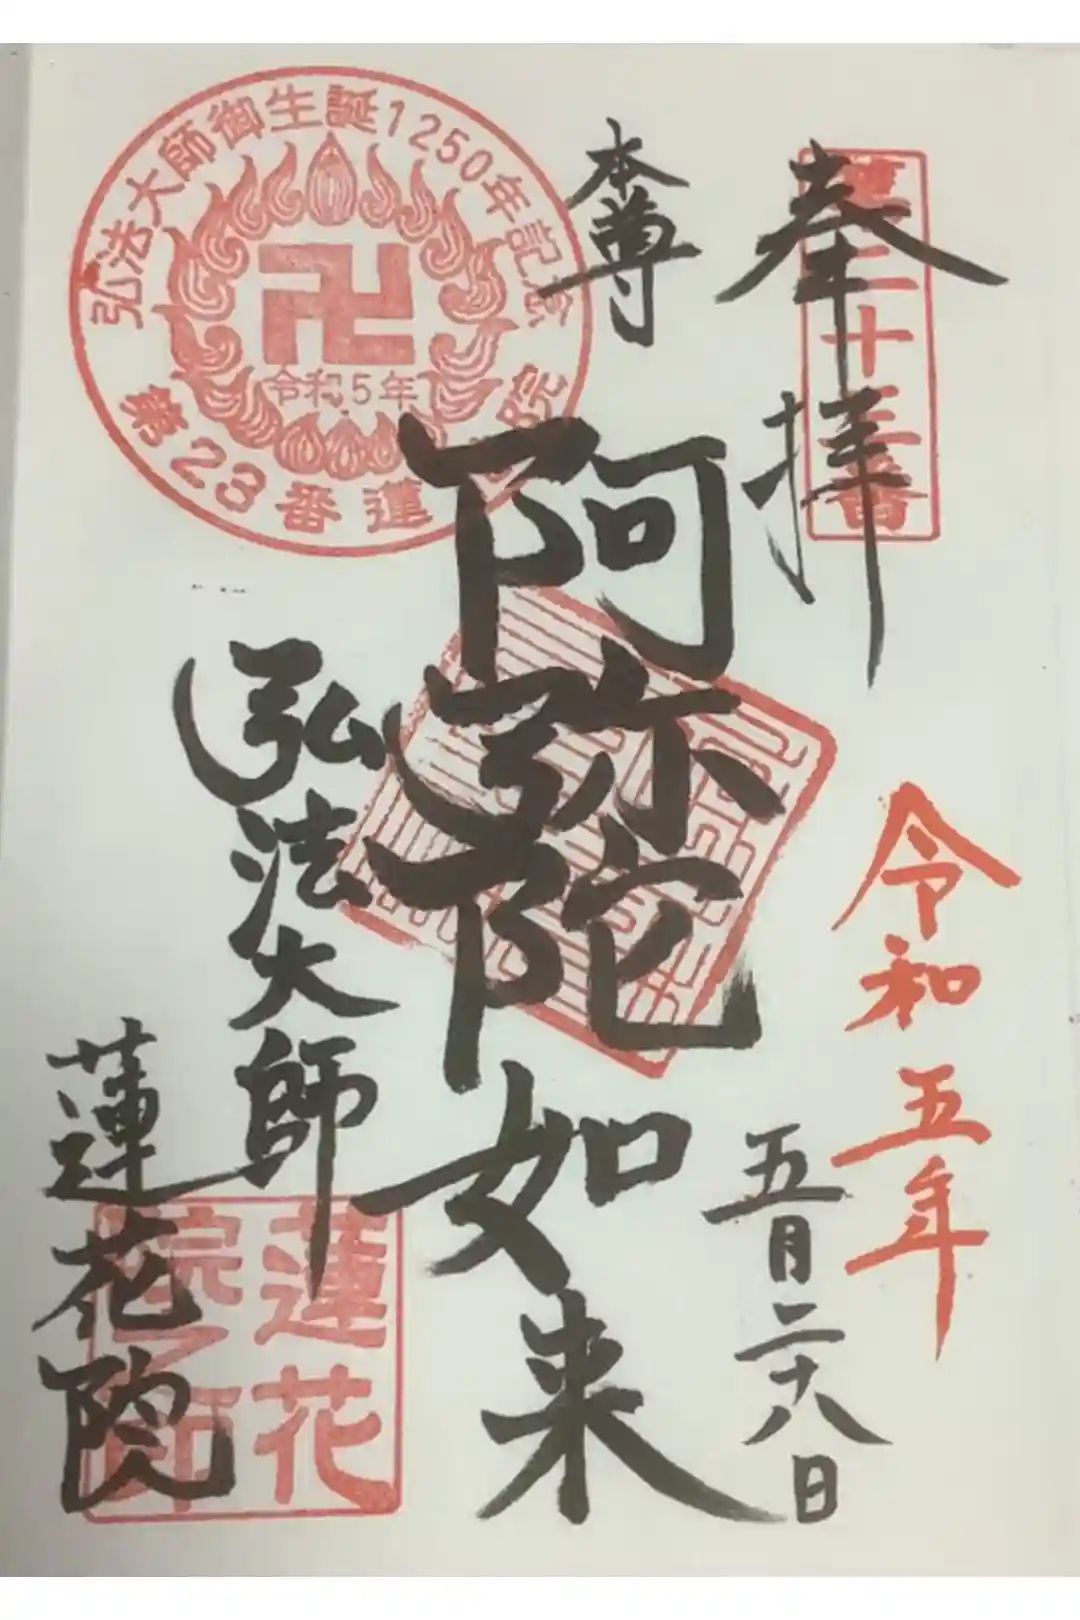 奉拝
第二十三番
令和五年
五月二十八日
本尊
阿弥陀如来
弘法大師
蓮花院
弘法大師御生誕1250年記念
令和5年
第23番蓮 院
蓮花
院之印